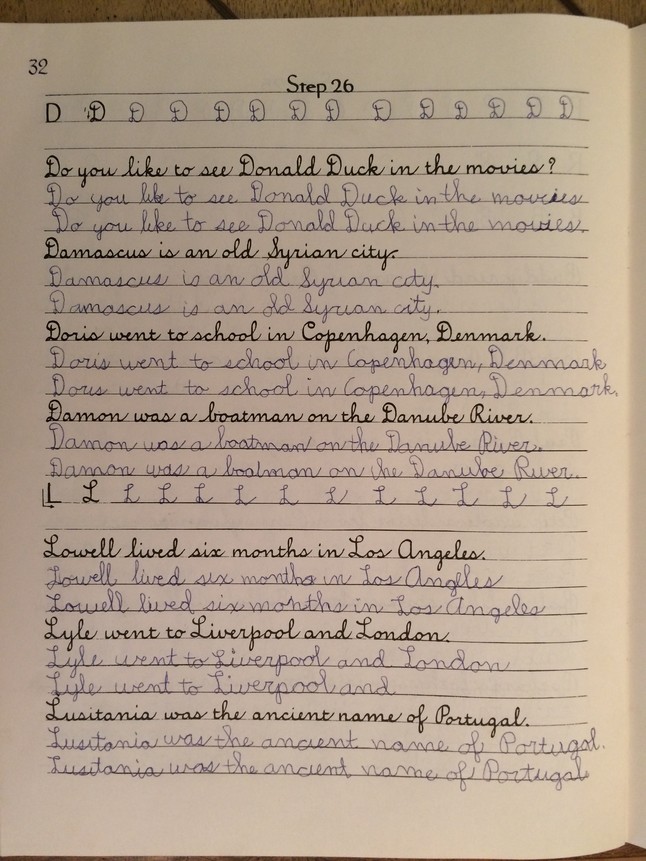 32
Step 26
D D D D D D D D D D D D D D
Do you like to see Donald Duck in the movies?
Do you like to see Donald Duck in the movies
Do you like to see Donald Duck in the movies.
Damascus is an old Syrian city.
Damascus is an old Syrian city.
Damascus is an old Syrian city.
Doris went to school in Copenhagen, Denmark.
Doris went to school in Copenhagen, Denmark
Doris went to school in Copenhagen, Denmark.
Damon was a boatman on the Danube River.
Damon was a boatman on the Danube River.
Damon was a boatman on the Danube River.
L L L L L L L L L L L L L
Lowell lived six months in Los Angeles.
Lowell lived six months in Los Angeles
Lowell lived six months in Los Angeles
Lyle went to Liverpool and London.
Lyle went to Liverpool and London
Lyle went to Liverpool and
Lusitania was the ancient name of Portugal.
Lusitania was the ancient name of Portugal.
Lusitania was the ancient name of Portugal